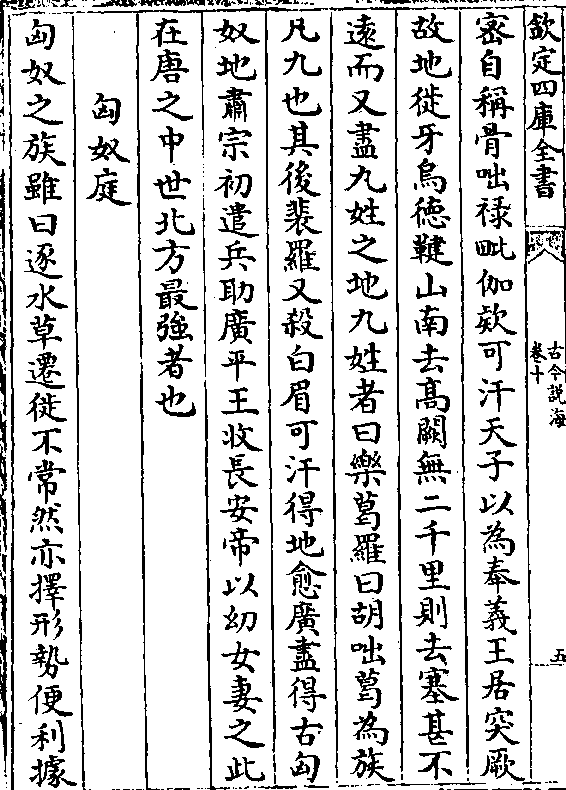 欽定四庫全書
古今說海
卷十
五
密自稱骨咄祿毗伽欵可汗天子以為奉義王居突厥
故地徙牙烏德鞬山南去高闕無二千里則去塞甚不
遠而又盡九姓之地九姓者曰樂葛羅曰胡咄葛為族
凡九也其後裴羅又殺白眉可汗得地愈廣盡得古匈
奴地肅宗初遣兵助廣平王收長安帝以幼女妻之此
在唐之中世北方最強者也
匈奴庭
匈奴之族雖曰逐水草遷徙不常然亦擇形勢便利據